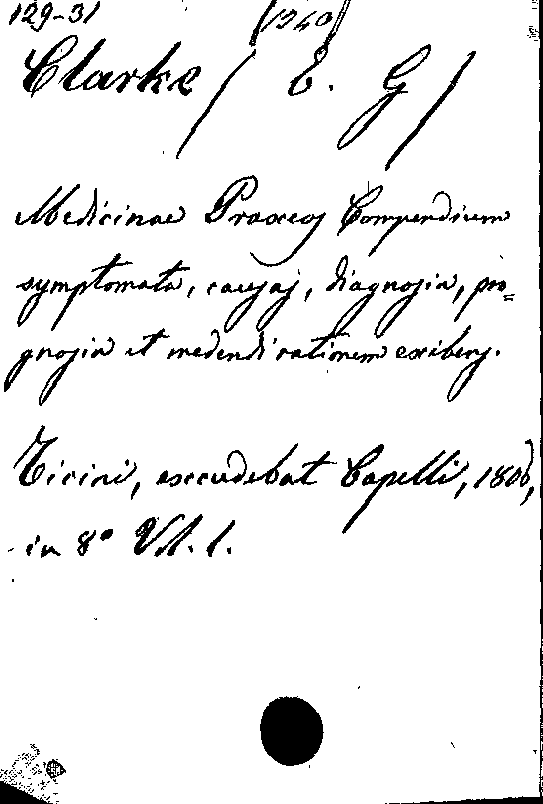 129-31 (1240)
Clarke / E. G /
Medicinae Praxeos Compendium
symptomata, causas, diagnosin, pro=
gnosin et medendi rationem exibens.
Ticini, excudebat Capelli, 1806,
in 8° Vol. 1.